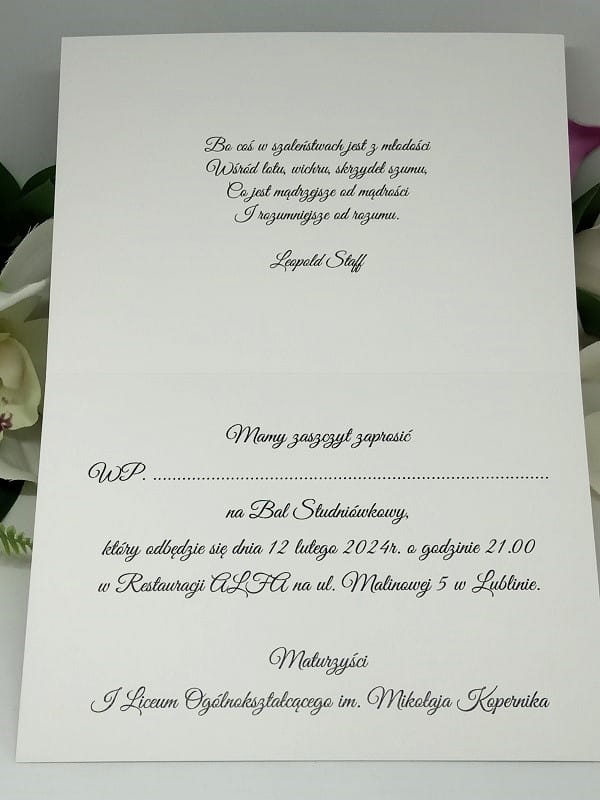 Bo coś w szaleństwach jest z młodości
Wśród lotu, wichru, skrzydeł szumu,
Co jest mądrzejsze od mądrości
I rozumniejsze od rozumu.
Leopold Staff
Mamy zaszczyt zaprosić
WP. ................................................................................
na Bal Studniówkowy,
który odbędzie się dnia 12 lutego 2024r. o godzinie 21.00
w Restauracji ALFA na ul. Malinowej 5 w Lublinie.
Maturzyści
I Liceum Ogólnokształcącego im. Mikołaja Kopernika